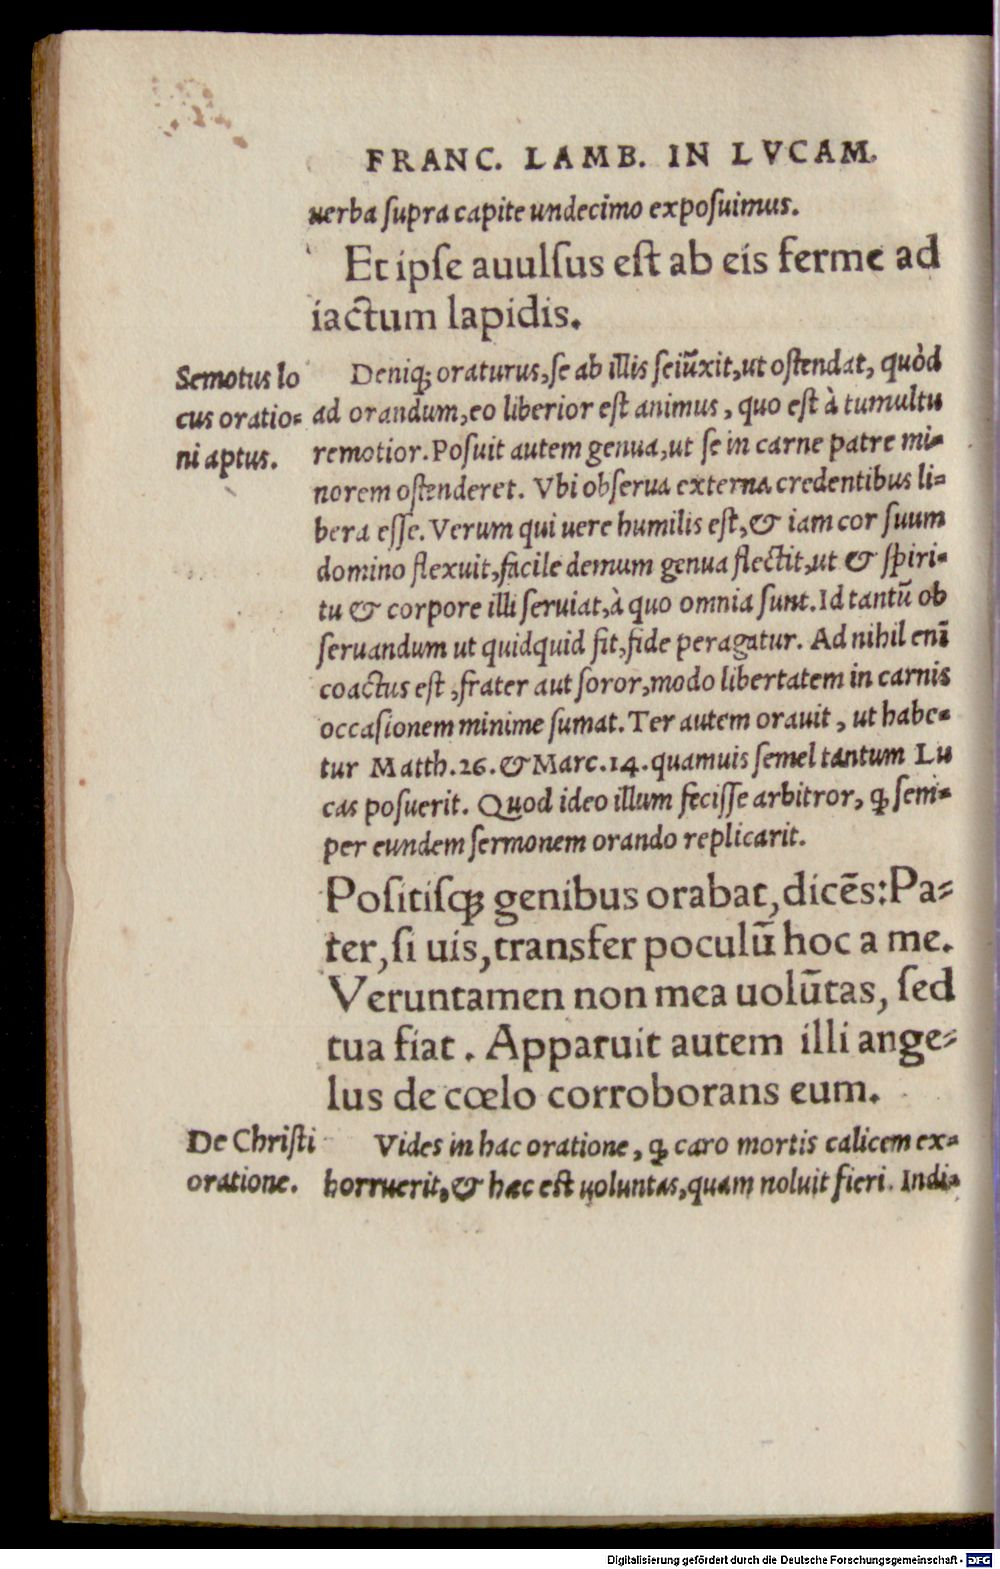 FRANC. LAMB. IN LVCAM.
uerba ſupra capite undecimo expoſuimus.
Et ipſe auulſus eſt ab eis ferme ad
iactum lapidis.
Semotus lo
cus oratio-
ni aptus.
Deniq; oraturus, ſe ab illis ſeiũxit, ut oſtendat, quòd
ad orandum, eo liberior eſt animus, quo eſt à tumultu
remotior. Poſuit autem genua, ut ſe in carne patre mi-
norem oſtenderet. Vbi obſerua externa credentibus li-
bera eſſe. Verum qui uere humilis eſt, & iam cor ſuum
domino flexuit, facile demum genua flectit, ut & ſpiri-
tu & corpore illi ſeruiat, à quo omnia ſunt. Id tantũ ob
ſeruandum ut quidquid fit, fide peragatur. Ad nihil enĩ
coactus eſt, frater aut ſoror, modo libertatem in carnis
occaſionem minime ſumat. Ter autem orauit, ut habe-
tur Matth. 26. & Marc. 14. quamuis ſemel tantum Lu
cas poſuerit. Quod ideo illum feciſſe arbitror, ꝙ ſem-
per eundem ſermonem orando replicarit.
Poſitiſq; genibus orabat, dicẽs: Pa-
ter, ſi uis, transfer poculũ hoc a me.
Veruntamen non mea uolũtas, ſed
tua fiat. Apparuit autem illi ange-
lus de cœlo corroborans eum.
De Chriſti
oratione.
Vides in hac oratione, ꝙ caro mortis calicem ex-
horruerit, & hæc eſt uoluntas, quam noluit fieri. Indi-
Digitalisierung gefördert durch die Deutsche Forschungsgemeinschaft - DFG